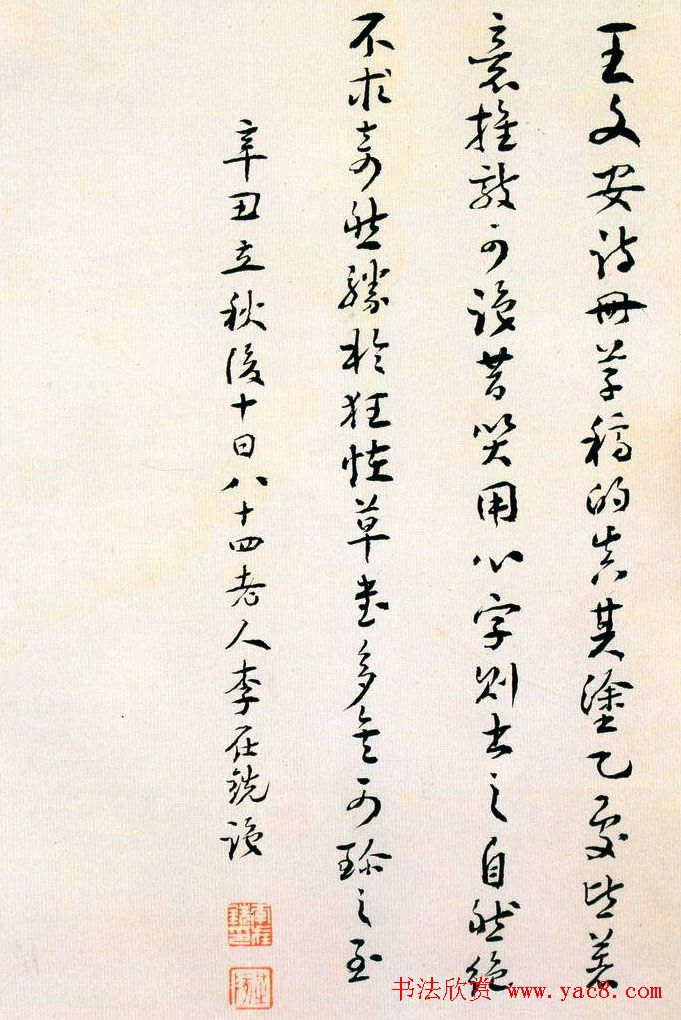 王文安詩冊草稿的真其塗乙處皆著
意推敲可識昔賢用心字則出之自然絕
不求奇然勝於狂怪草書多矣可珍之至
辛丑立秋後十日八十四老人李在銑識
书法欣赏 www.yac8.com